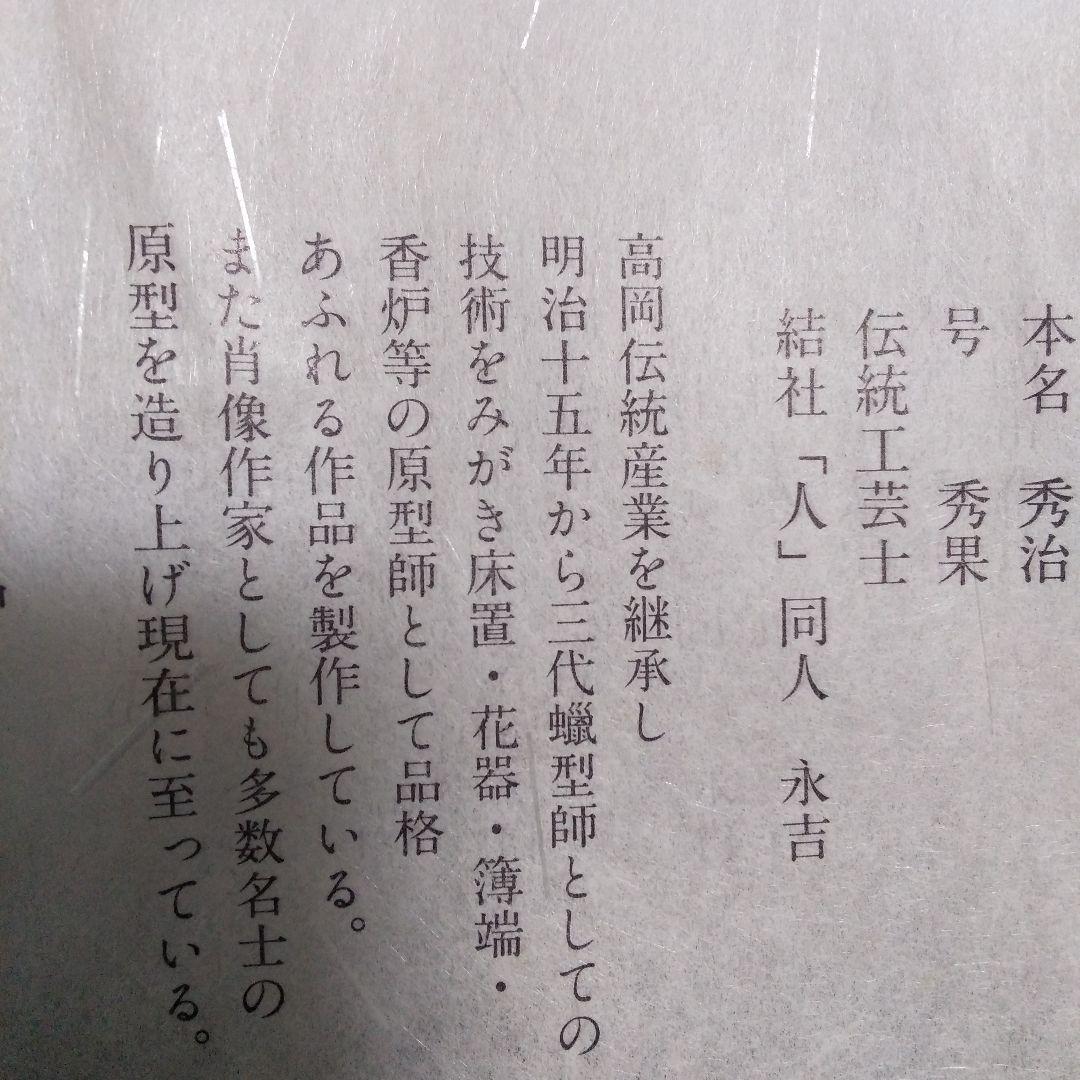 本名　秀治
号　　秀果
伝統工芸士
結社「人」同人　永吉
高岡伝統産業を継承し
明治十五年から三代蠟型師としての
技術をみがき床置・花器・簿端・
香炉等の原型師として品格
あふれる作品を製作している。
また肖像作家としても多数名士の
原型を造り上げ現在に至っている。